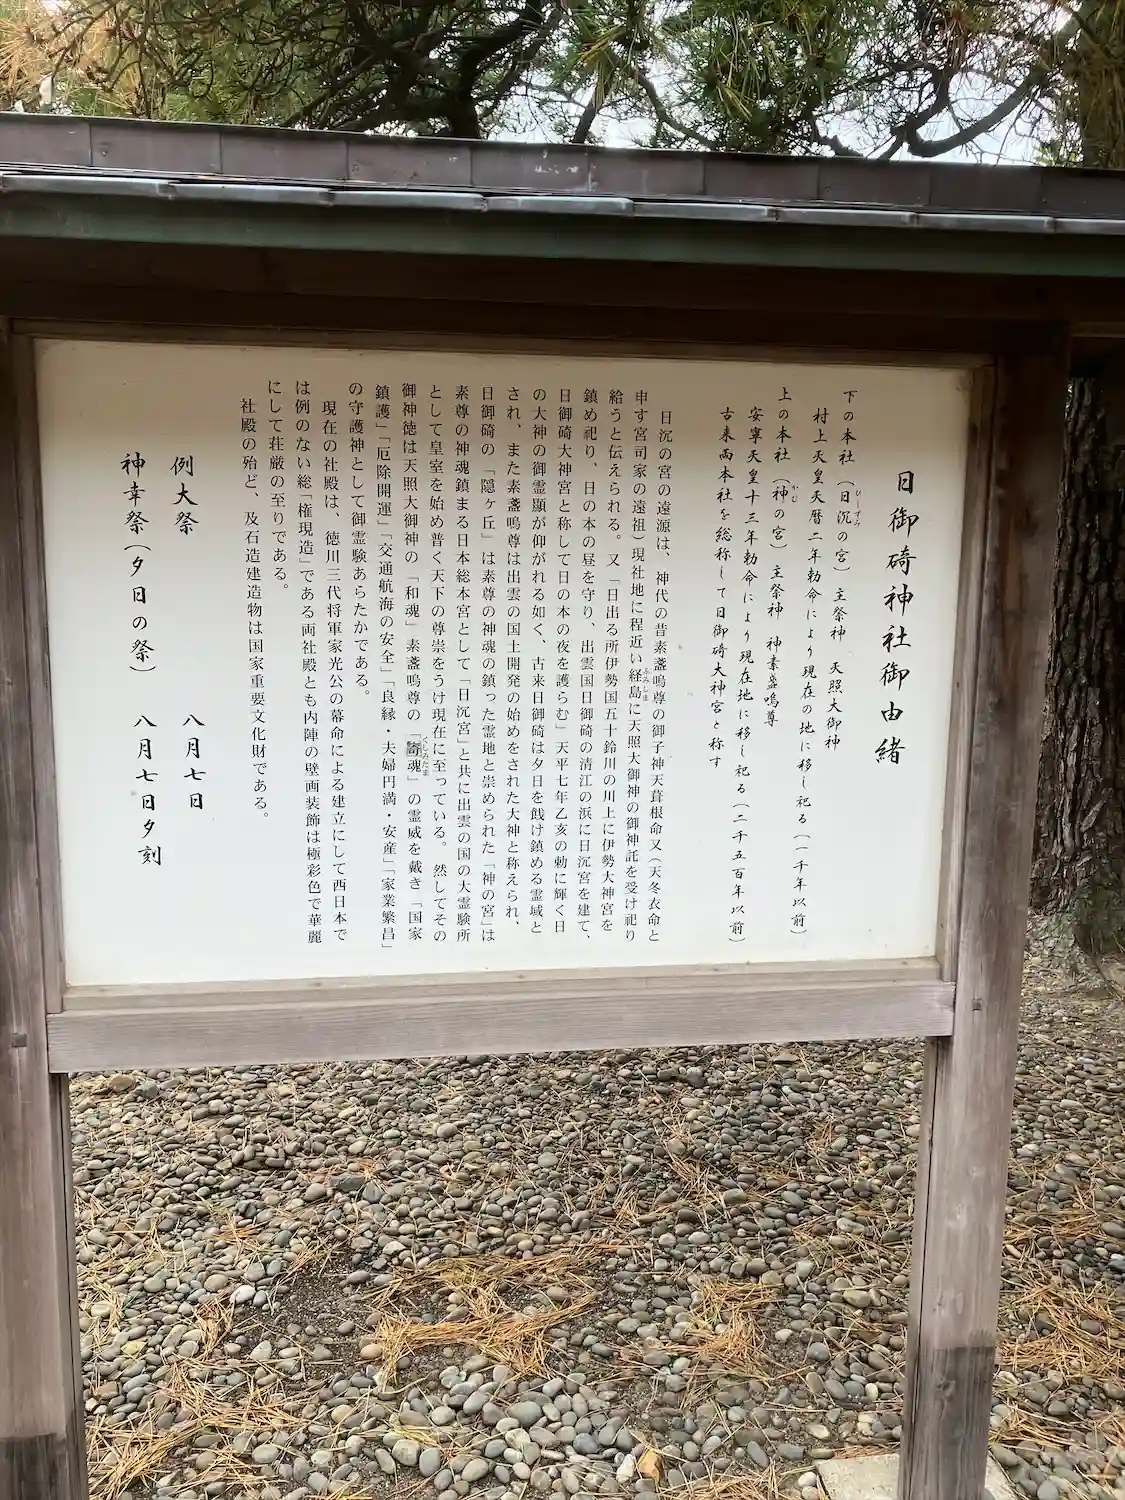 日御碕神社御由緒
下の本社（日沉の宮）　主祭神　天照大御神
村上天皇天暦二年勅命により現在の地に移し祀る（一千年以前）
上の本社（神の宮）　主祭神　神素盞嗚尊
安寧天皇十三年勅命により現在地に移し祀る（二千五百年以前）
古来両本社を総称して日御碕大神宮と称す
日沉の宮の遠源は、神代の昔素盞嗚尊の御子神天葺根命又（天冬衣命と
申す宮司家の遠祖）現社地に程近い経島に天照大御神の御神託を受け祀り
給うと伝えられる。又「日出る所伊勢国五十鈴川の川上に伊勢大神宮を
鎮め祀り、日の本の昼を守り、出雲国日御碕の清江の浜に日沉宮を建て、
日御碕大神宮と称して日の本の夜を護らむ」天平七年乙亥の勅に輝く日
の大神の御霊顯が仰がれる如く、古来日御碕は夕日を餞け鎮める霊域と
され、また素盞嗚尊は出雲の国土開発の始めをされた大神と称えられ、
日御碕の「隠ヶ丘」は素尊の神魂の鎮った霊地と崇められた「神の宮」は
素尊の神魂鎮まる日本総本宮として「日沉宮」と共に出雲の国の大霊験所
として皇室を始め普く天下の尊崇をうけ現在に至っている。然してその
御神徳は天照大御神の「和魂」素盞嗚尊の「奇魂」の霊威を戴き「国家
鎮護」「厄除開運」「交通航海の安全」「良縁・夫婦円満・安産」「家業繁昌」
の守護神として御霊験あらたかである。
現在の社殿は、徳川三代将軍家光公の幕命による建立にして西日本で
は例のない総「権現造」である両社殿とも内陣の壁画装飾は極彩色で華麗
にして荘厳の至りである。
社殿の殆ど、及石造建造物は国家重要文化財である。
例大祭　八月七日
神幸祭（夕日の祭）　八月七日夕刻